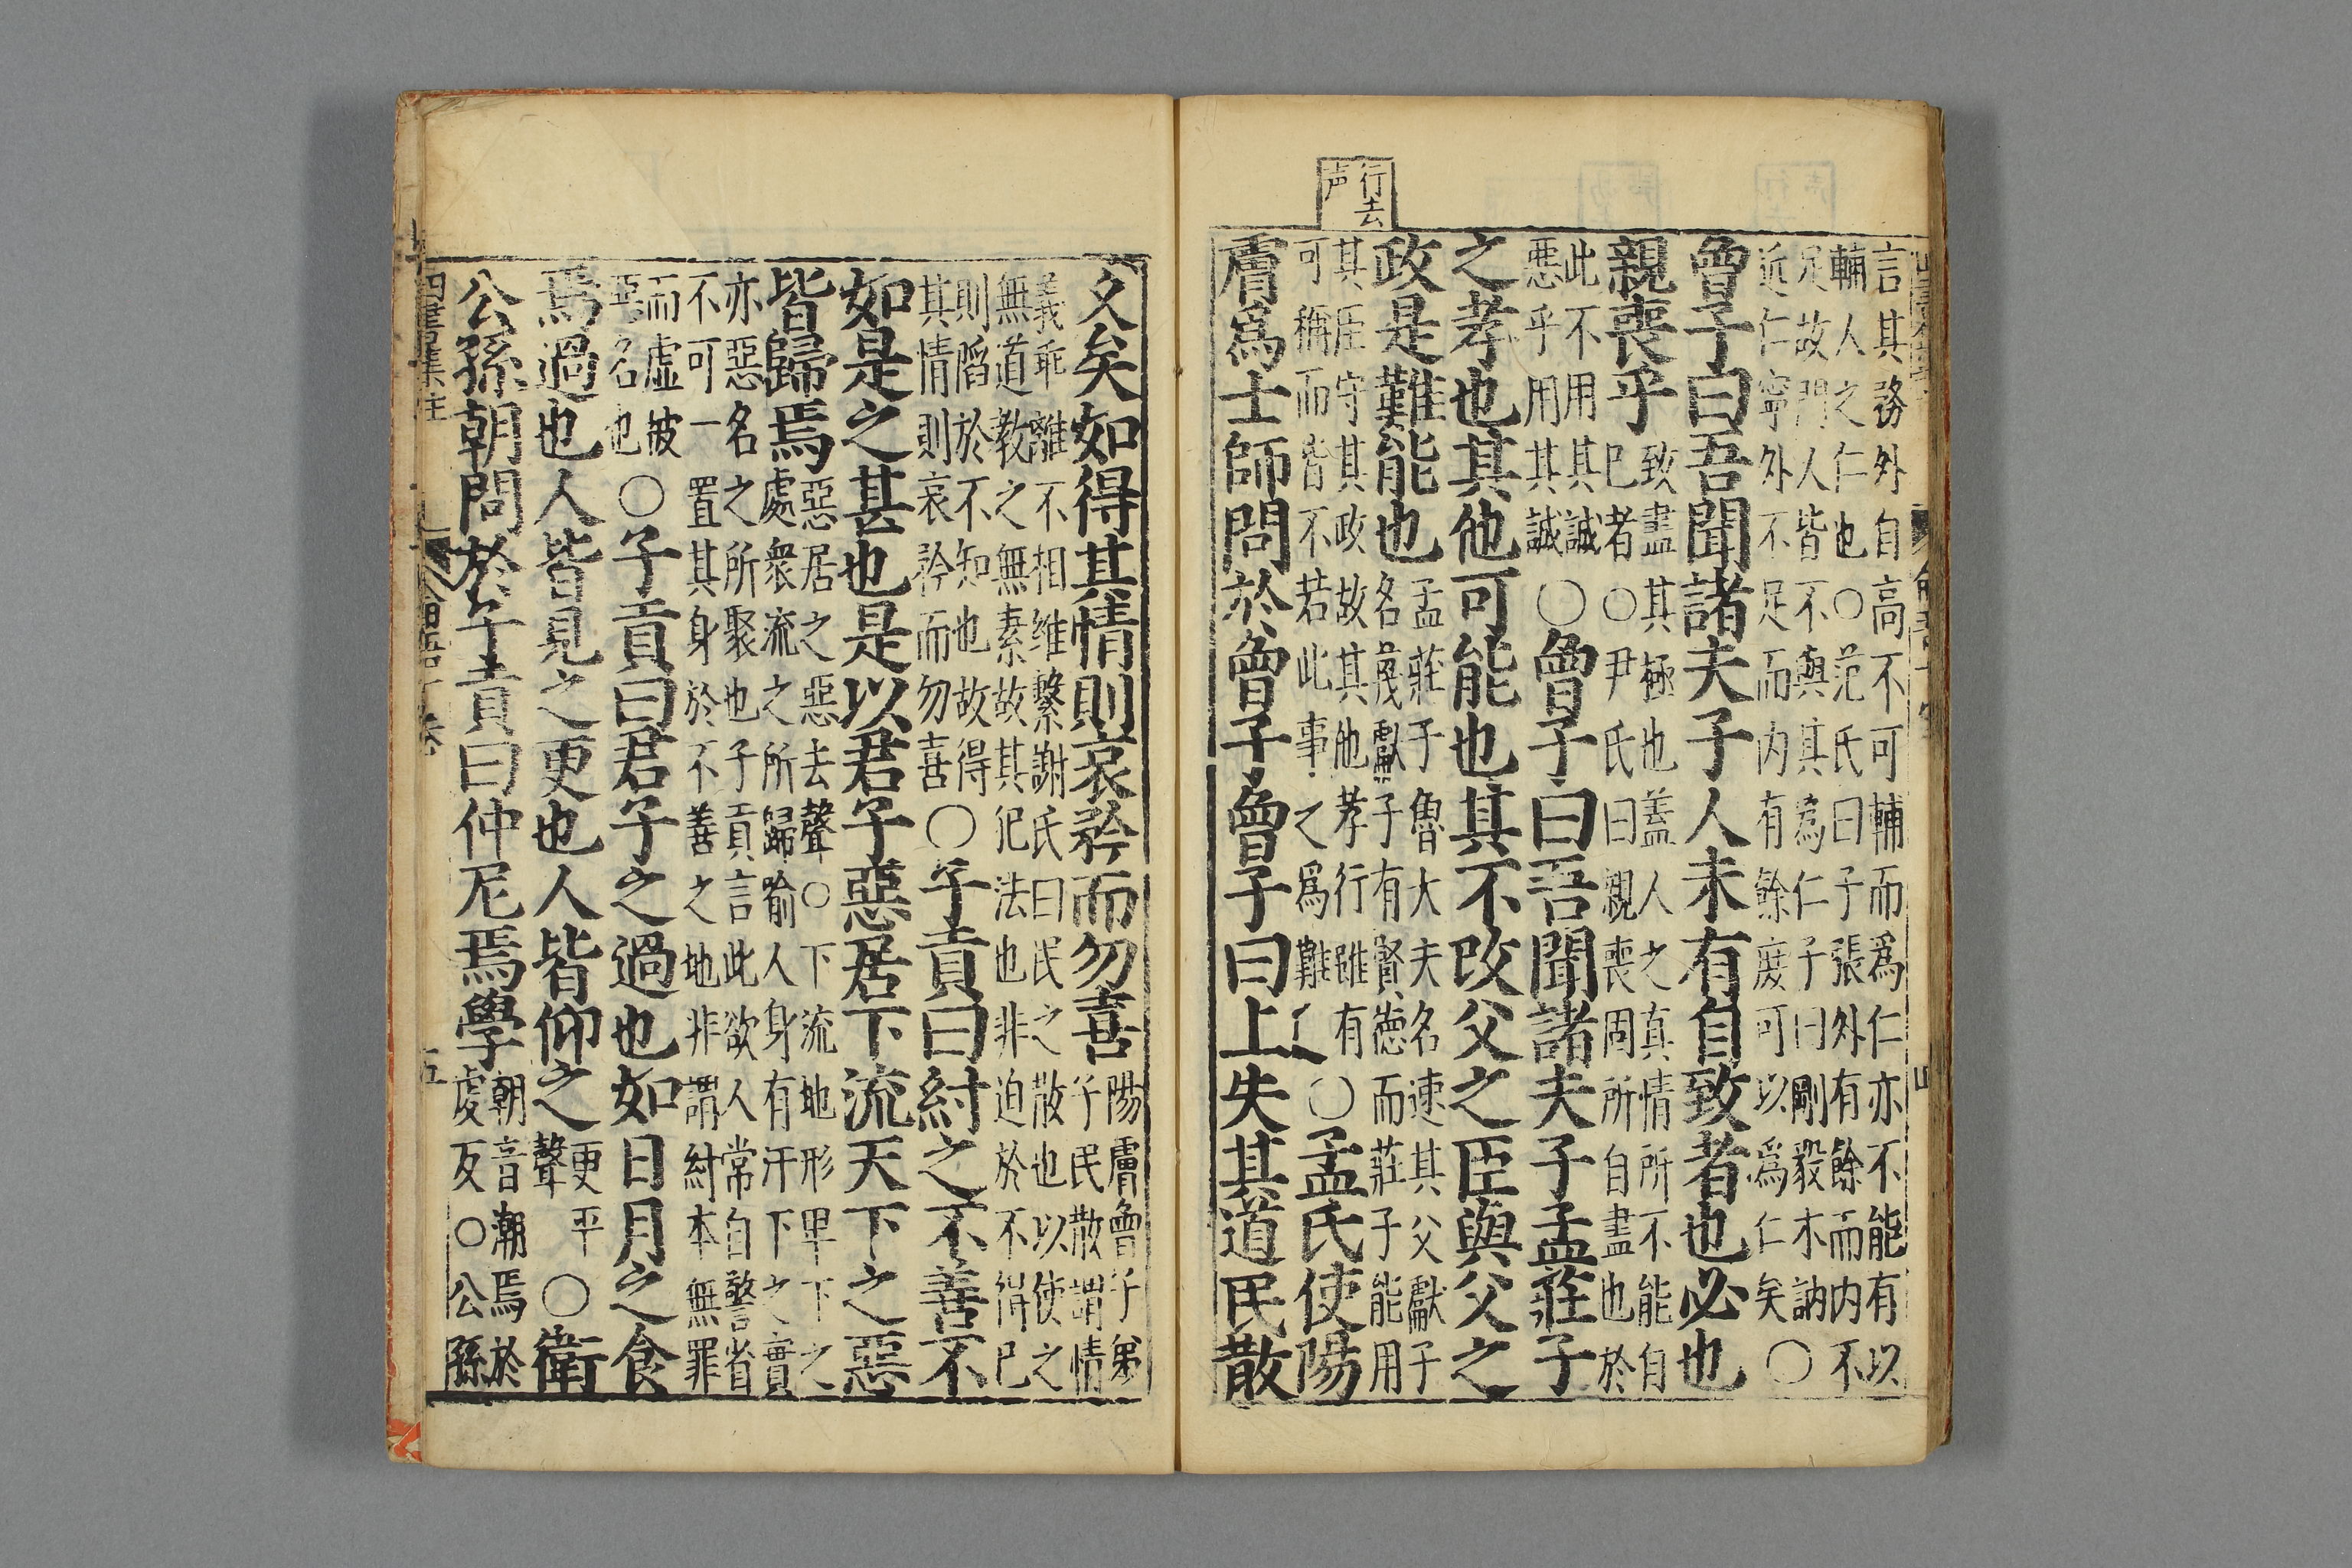 行去
声
言其務外自高不可輔而爲仁亦不能有以
輔人之仁也○范氏曰子張外有餘而内不
足故門人皆不與其為仁子曰剛毅木訥
近仁寧外不足而内有餘庶可以爲仁矣○
曾子曰吾聞諸夫子人未有自致者也必也
親喪乎
致盡其極也盖人之真情所不能自
已者○尹氏曰親喪固所自盡也於
此不用其誠
惡乎用其誠
○曾子曰吾聞諸夫子孟莊子
之孝也其他可能也其不改父之臣與父之
政是難能也
孟莊子魯大夫名速其父獻子
名蔑獻子有賢德而莊子能用
其臣守其政故其他孝行雖有
可稱而皆不若此事之爲難
○孟氏使陽
膚爲士師問於曾子曾子曰上失其道民散
久矣如得其情則哀矜而勿喜
陽膚曾子弟
子民散謂情
義乖離不相維繫謝氏曰民之散也以使之
無道教之無素故其犯法也非迫於不得已
則陷於不知也故得
其情則哀矜而勿喜
○子貢曰紂之不善不
如是之甚也是以君子惡居下流天下之惡
皆歸焉
惡居之惡去聲○下流地形卑下之
處衆流之所歸喻人身有汙下之實
亦惡名之所聚也子貢言此欲人常自警省
不可一置其身於不善之地非謂紂本無罪
而虚被
惡名也
○子貢曰君子之過也如日月之食
焉過也人皆見之更也人皆仰之
更平
聲
○衛
公孫朝問於子貢曰仲尼焉學
朝音潮焉於
虔反○公孫
四書集注
五